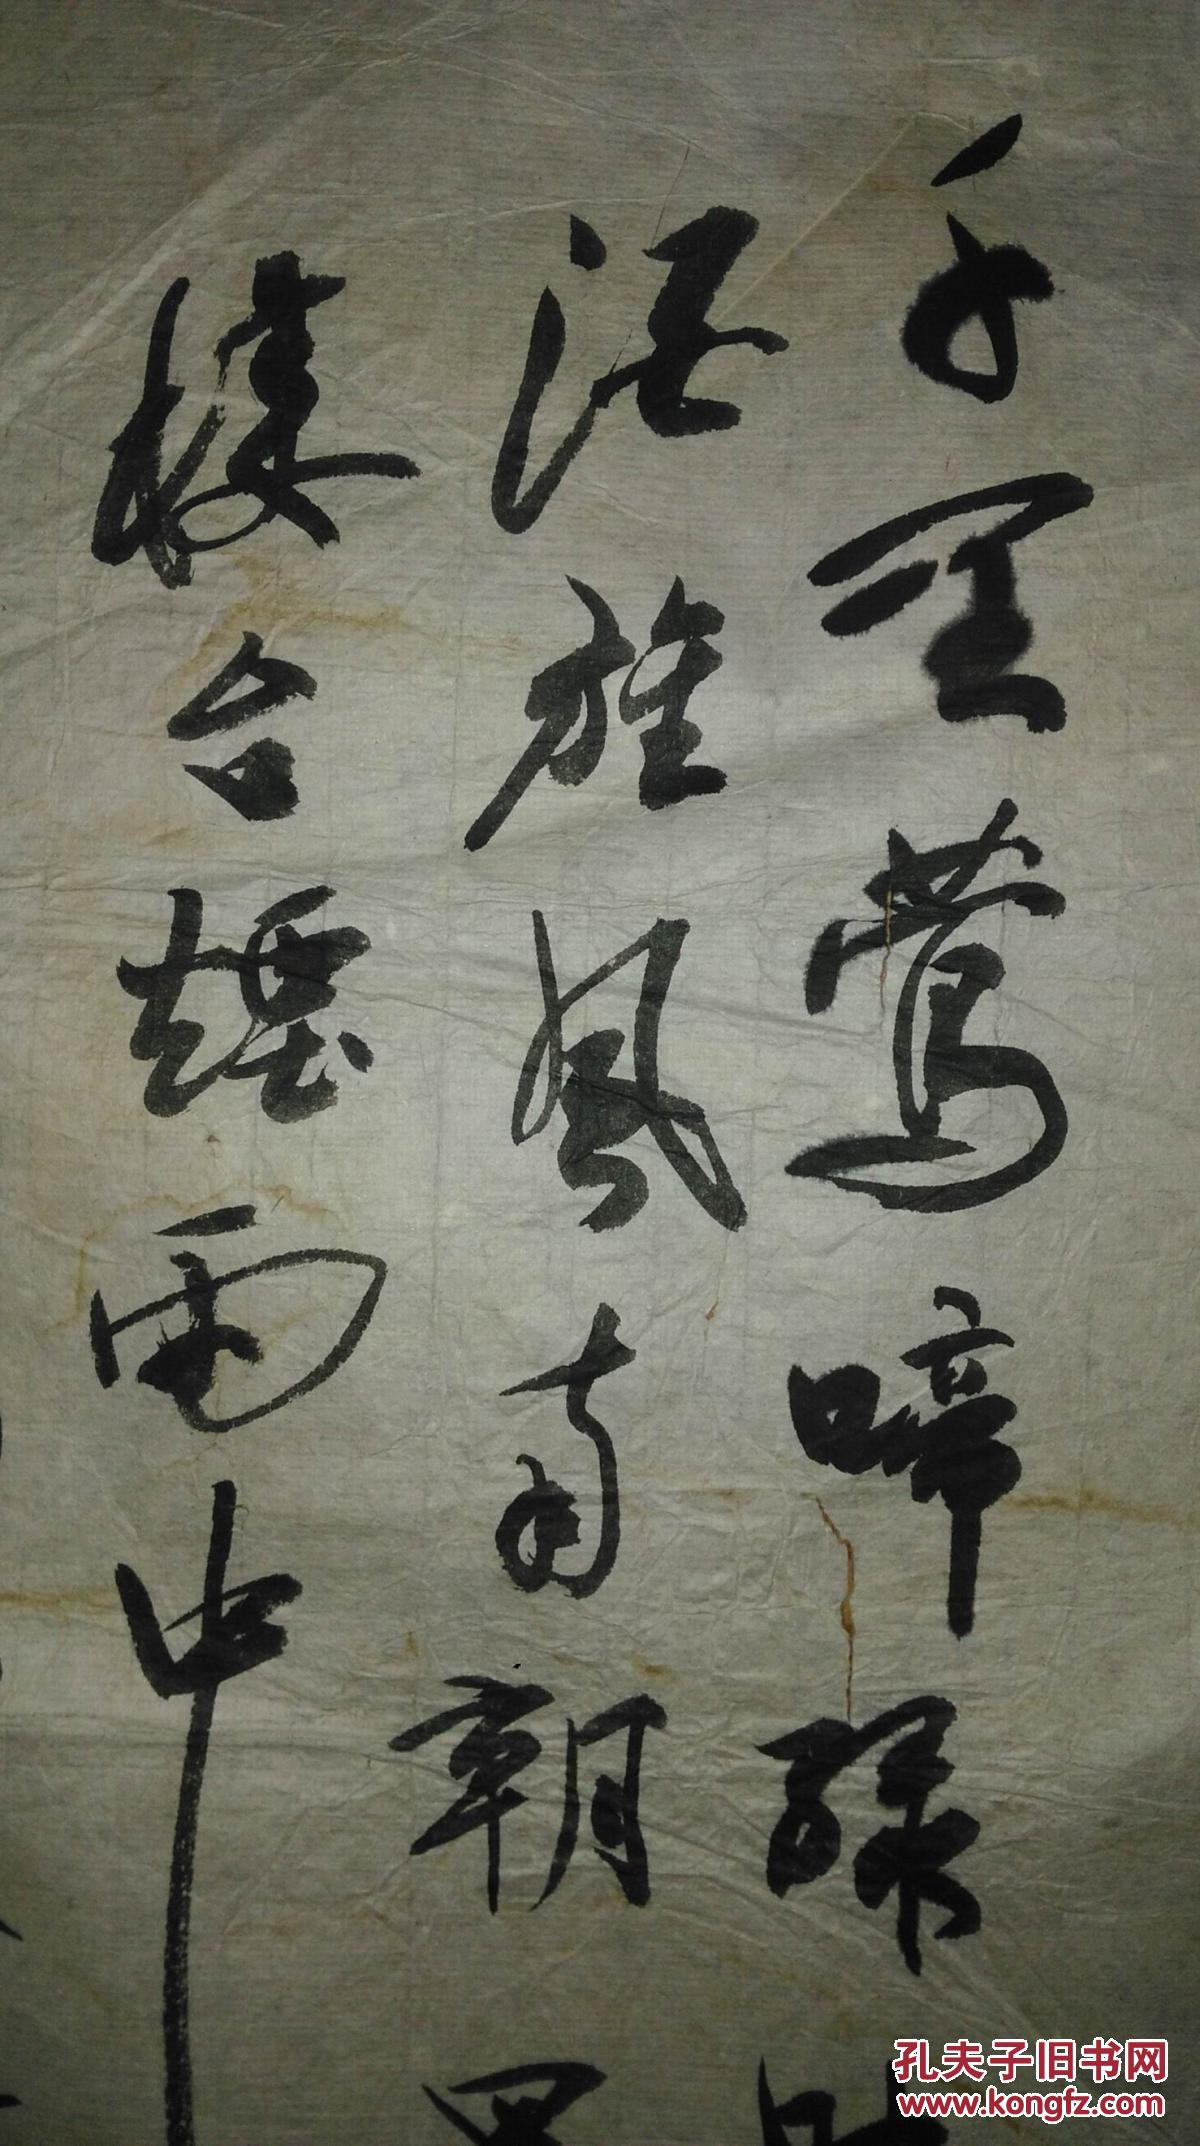 千里莺啼绿
酒旌风南朝
楼台煙雨中
孔夫子旧书网
www.kongfz.com